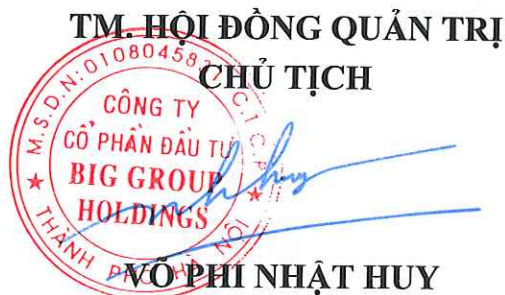 TM. HỘI ĐỒNG QUẢN TRỊ
CHỦ TỊCH
M.S.D.N: 0108045837 C.T.C.P
CÔNG TY
CỔ PHẦN ĐẦU TƯ
BIG GROUP
HOLDINGS
THÀNH PHỐ HÀ NỘI
huy
VÕ PHI NHẬT HUY